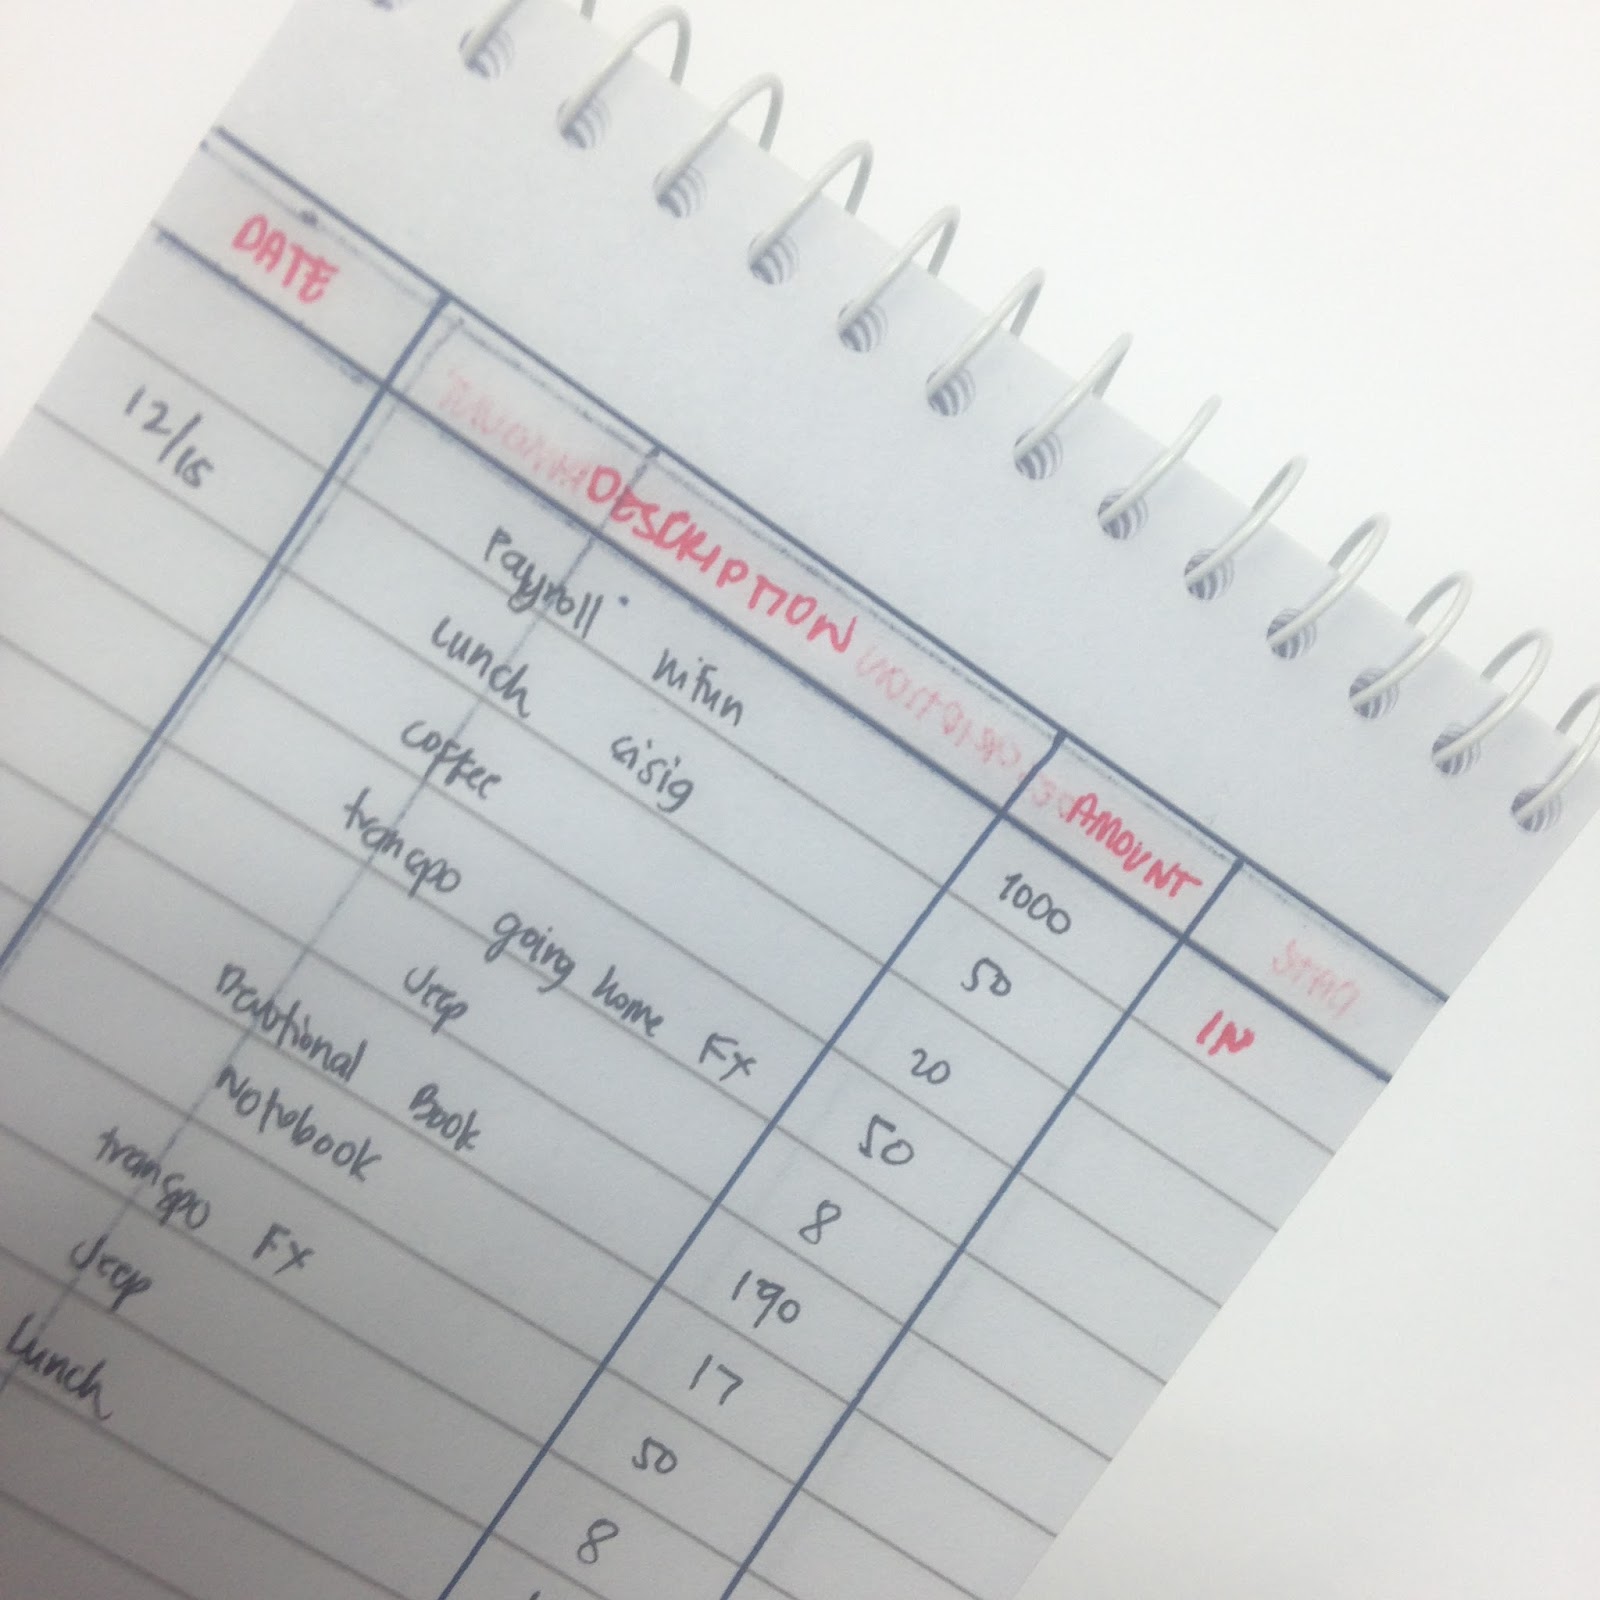 DATE DESCRIPTION AMOUNT
12/15 Payroll 1000 IN
Lunch sisig 50
coffee 20
transpo going home FX 50
Jeep 8
Devotional Book 190
Notebook 17
transpo FX 50
Jeep 8
Lunch